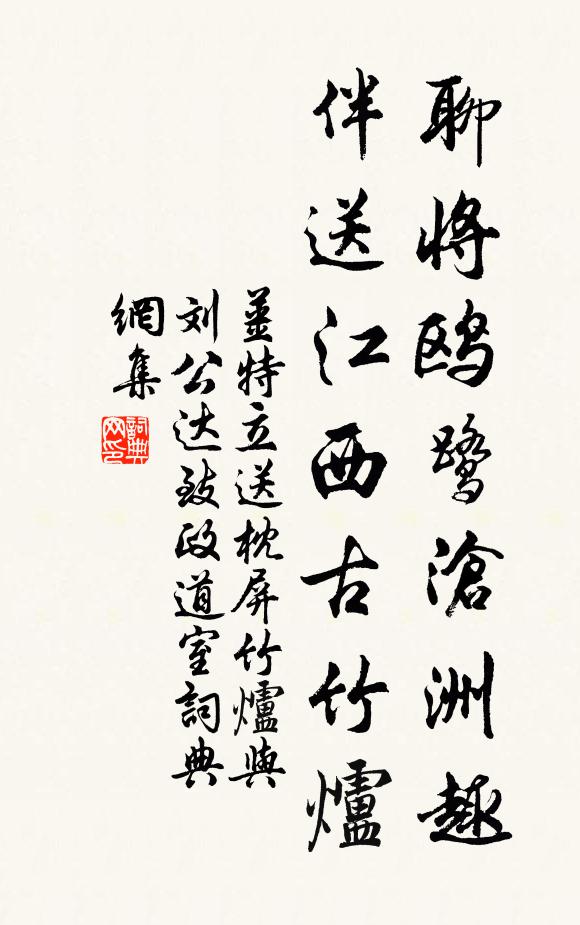 聊將鸥鹭滄洲趣
伴送江西古竹爐
薑特立送枕屏竹爐與
刘公达致政道室詞典
網集
詞典网印